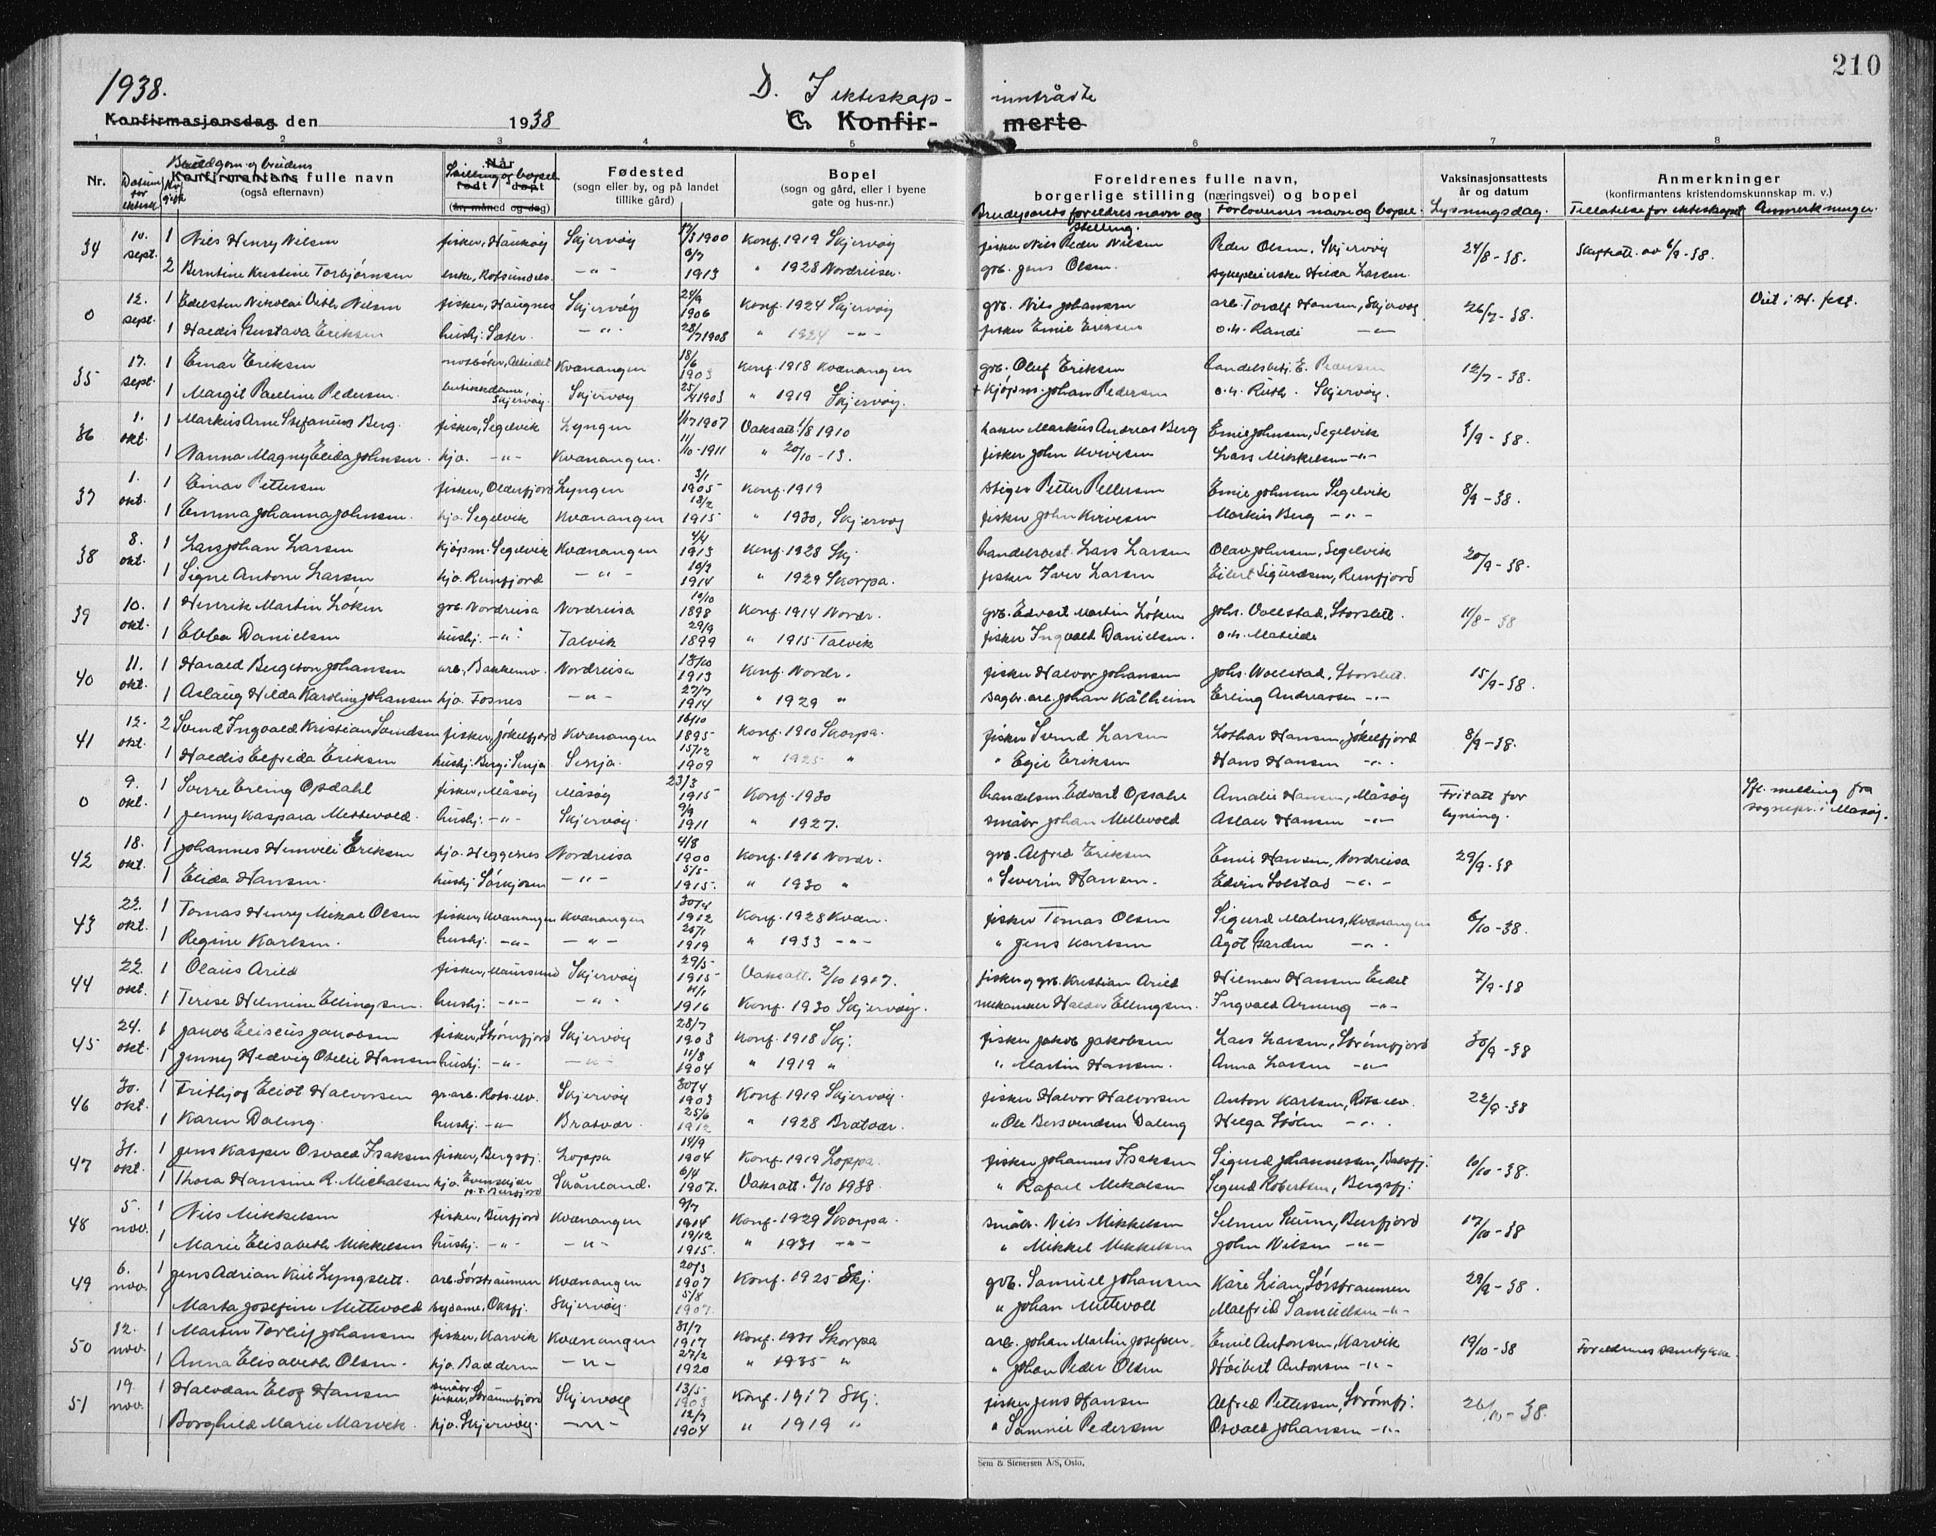 210
1938.
D. I ekteskap- inntrådte
Konfirmasjonsdag den 1938
C. Konfir- merte
1 2 3 4 5 6 7 8
Nr.
Datum for ektesk.
Brudgom og brudens
Konfirmantens fulle navn
(også efternavn)
Når
Stilling og bopel
født døpt
(år, måned og dag)
Fødested
(sogn eller by, og på landet
tillike gård)
Bopel
(sogn og gård, eller i byene
gate og hus-nr.)
Foreldrenes fulle navn,
borgerlige stilling (næringsvei) og bopel
Brudeparets foreldres navn og stilling.
Forlovernes navn og bopel.
Vaksinasjonsattests
år og datum
Lysningsdag.
Anmerkninger
(konfirmantens kristendomskunnskap m. v.)
Tillatelse for ekteskapet
Anmerkninger.
34 10. sept. 1 Nils Henry Nilsen fisker, Haukøy Skjervøy 12/3 1900 Konf. 1919 Skjervøy fisker Nils Peder Nilsen Peder Olsen, Skjervøy 24/8-38. Skiftatt. av 6/9-38.
2 Berntine Kristine Torbjørnsen enke, Rotsundelv. -"- 6/7 1913 " 1928 Nordreisa. grb. Jens Olsen. sykepleierske Hilda Larsen
0 12. sept. 1 Edelsten Nikolai Vith Nilsen fisker, Haugnes Skjervøy 24/9 1906 Konf. 1924 Skjervøy grb. Nils Johansen arb. Toralf Hansen, Skjervøy 26/7-38. Viet i H. fest.
1 Hardis Gustava Eriksen hushj. Sæter. -"- 28/7 1908 " 1924 -"- fisker Emil Eriksen o.h. Randi -"-
35 17. sept. 1 Einar Eriksen notbøter, Alteidet Kvænangen 18/6 1903 Konf. 1918 Kvænangen grb. Oluf Eriksen handelsbetj. E. Pedersen 12/7-38.
1 Margit Pauline Pedersen. butikkdame Skjervøy. Skjervøy 25/4 1903 " 1919 Skjervøy. + Kjøpm. Johan Pedersen o.h. Ruth. Skjervøy.
36 1. okt. 1 Markus Arne Stefanius Berg. fisker, Segelvik Lyngen 1/7 1907 Vaksatt 1/8 1910 Markus Andreas Berg Emil Johnsen, Segelvik 3/9-38.
1 Nanna Magny Elida Johnsen. hjv. -"- Kvænangen. 11/10-1911 " 20/10-13. fisker John Kvivesen Lars Mikkelsen -"-
37 1. okt. 1 Einar Pettersen fisker, Olderfjord Lyngen 3/1 1905 Konf. 1919 Petter Pettersen Emil Johnsen Segelvik 8/9-38.
1 Emma Johanna Johnsen. hjv. Segelvik Kvænangen 13/2 1915 " 1930, Skjervøy fisker John Kvivesen Markus Berg -"-
38 8. okt. 1 Lars Johan Larsen kjøpm. Segelvik Kvænangen 4/4 1913 Konf. 1928 Skj. handelsbest. Lars Larsen Olav Johnsen, Segelvik 20/9-38.
1 Signe Antone Larsen hjv. Reinfjord -"- 10/9 1914 " 1929 Skorpa. fisker Iver Larsen Eilert Sigurdsen, Reinfjord
39 10. okt. 1 Henrik Martin Løken grb. Nordreisa Nordreisa 10/10 1898 Konf. 1914 Nordr. grb. Edvart Martin Løken Johs. Vollstad, Storslett. 11/8-38
1 Ebba Danielsen hushj. -"- Talvik 29/9 1899 " 1915 Talvik fisker Ingvald Danielsen. o.h. Matilde
40 11. okt. 1 Harald Bergeton Johansen arb. Bakkemo Nordreisa 13/10 1913 Konf. Nordr. fisker Halvor Johansen Johs. Wollstad, Storslett. 15/9-38.
1 Aslaug Hilda Karoline Johansen hjv. Fosnes -"- 27/7 1914 " 1929 " sagbr. arb. Johan Kålheim Erling Andreassen -"-
41 12. okt. 2 Svend Ingvald Kristian Svendsen fisker, Jøkelfjord Kvænangen 16/10 1895 Konf. 1910 Skorpa. fisker Svend Larsen Lothar Hansen, Jøkelfjord 8/9-38.
1 Hardis Elfrida Eriksen hushj. Berg i Senja Senja. 15/12 1909 " 1925 " " Egil Eriksen Hans Hansen -"-
0 9. okt. 1 Sverre Erling Opsahl fisker, Måsøy Måsøy 23/3 1915 Konf. 1930 handelsm Edvart Opsahl Amalie Hansen, Måsøy Fritatt for lysning. Ifl. melding fra sognepr. i Måsøy.
1 Jenny Kaspara Mettevold. hushj. -"- Skjervøy. 9/9 1911 " 1927. småbr. Johan Mettevold Aslaur Hansen -"-
42 18. okt. 1 Johannes Henvili Eriksen hjv. Heggenes Nordreisa 4/8 1900 Konf. 1916 Nordr. grb. Alfred Eriksen Emil Hansen, Nordreisa 29/9-38
1 Elida Hansen. hushj. Sørkjosen -"- 5/5 1915. " 1930 " " Severin Hansen. Edvin Solstad -"-
43 22. okt. 1 Tomas Henry Mikal Olsen fisker, Kvænangen Kvænangen 30/4 1912 Konf. 1928 Kvæn. fisker Tomas Olsen Sigurd Malnes, Kvænangen 6/10-38.
1 Regine Karlsen. hushj. -"- -"- 20/1 1919 " 1933 -"- " Jens Karlsen Ågot Garden -"-
44 22. okt. 1 Olaus Arild fisker, Maursund Skjervøy 29/5 1915 Vaksatt. 2/10 1917. fisker og grb. Kristian Arild Hilmar Hansen Eidet 7/9-38
1 Terise Helmine Ellingsen. hushj. -"- -"- 4/1 1916 Konf. 1930 Skjervøy. mekaniker Haldor Ellingsen. Ingvald Arneng -"-
45 24. okt. 1 Jakob Eliseus Jakobsen fisker, Strømfjord Skjervøy 28/7 1903 Konf. 1918 Skj. fisker Jakob Jakobsen Lars Larsen, Strømfjord 30/9-38
1 Jenny Hedvig Otelie Hansen hushj. -"- -"- 11/8 1904 " 1919 " " Martin Hansen. Anna Larsen -"-
46 30. okt. 1 Fritbjog Eliot Halvorsen gr.arb. Rotselv. Skjervøy 30/4 1903 Konf. 1919 Skjervøy. fisker Halvor Halvorsen Anton Karlsen, Rotselv. 22/9-38
1 Karen Daling. hushj. -"- Bratvær. 25/6 1912 " 1928 Bratvær. " Ole Bersvendsen Daling Helga Stølen -"-
47 31. okt. 1 Jens Kasper Osvald Isaksen fisker, Bergsfj. Loppa 14/9 1904 Konf. 1919 Loppa. fisker Johannes Isaksen Sigurd Johannessen, Bergsfj. 10/10-38.
1 Thora Hansine R. Michalsen hjv. Evenskjer p.t. Burfjord Skånland. 6/4 1907. Vaksatt. 6/10 1938. " Rafael Mikalsen Sigurd Robertsen, Bergsfj.
48 5. nov. 1 Nils Mikkelsen fisker, Burfjord Kvænangen 9/7 1914 Konf. 1929 Skorpa. småbr. Nils Mikkelsen Selmer Skum, Burfjord 17/10-38
1 Marie Elisabeth Mikkelsen hushj. -"- -"- 19/12 1915. " 1931 -"- " Mikkel Mikkelsen John Nilsen -"-
49 6. nov. 1 Jens Adrian Kiil Lyngslett. arb. Sørstraumen Kvænangen 20/3 1907 Konf. 1925 Skj. grb. Samuel Johansen Kåre Lian, Sørstraumen 29/9-38.
1 Marta Josefine Mettevold sydame. Oksfj. Skjervøy. 5/8 1907. " Johan Mettevoll Malfrid Samuelsen -"-
50 12. nov. 1 Martin Torleif Johansen fisker, Karvik Kvænangen 31/7 1917 Konf. 1931 Skorpa arb. Johan Martin Josefsen. Emil Antonsen, Karvik 19/10-38 Foreldrenes samtykke.
1 Anna Elisabeth Olsen. hjv. Badderen -"- 27/2 1920 " 1935 " " Johan Peder Olsen Høibert Antonsen -"-
51 19. nov. 1 Halvdan Elog Hansen småbr. fisker, Straumfjord Skjervøy 13/5 1903 Konf. 1917 Skj. fisker Jens Hansen Alfred Pettersen, Strømfj. 26/10-38.
1 Borghild Marie Marvik. hjv. Skjervøy. -"- 12/7 1904 " 1919 " " Samuel Pedersen Osvald Johansen -"-
Sem & Stenersen A/S, Oslo.